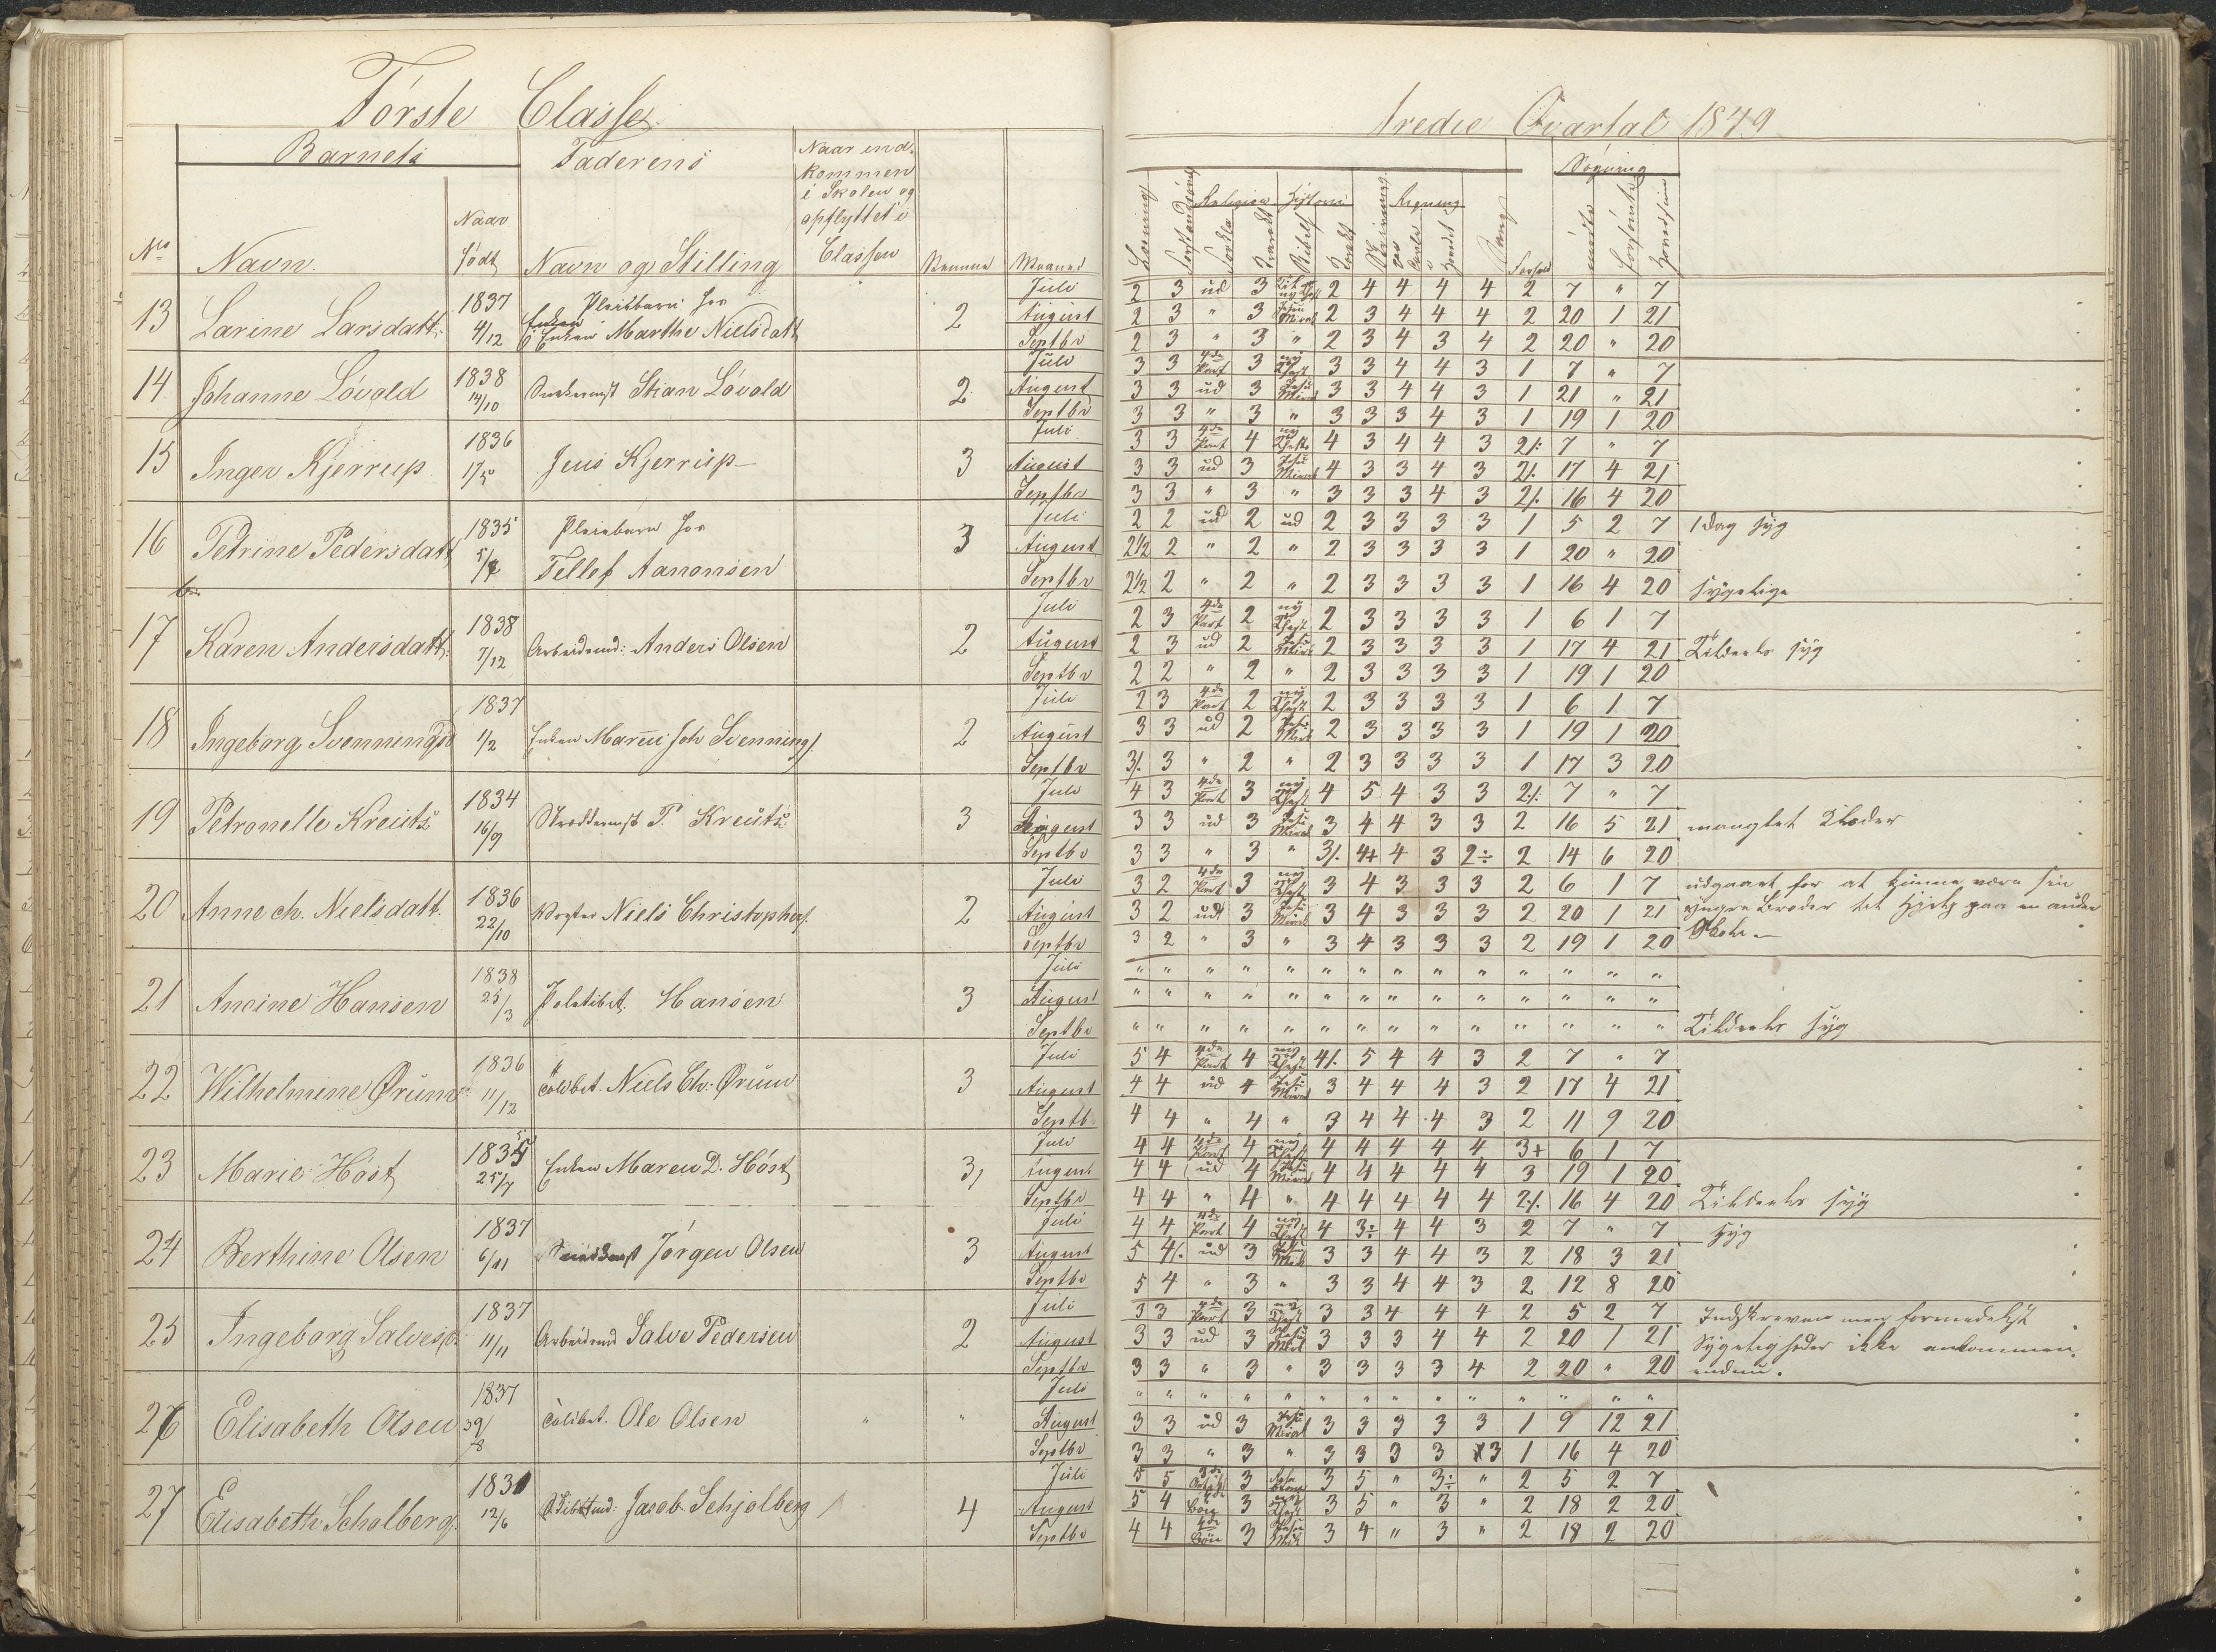 Förste Classe.
Barnets Faderens Naar ind-
kommen
i Skolen og
opflyttet i
Classen
No Navn. Naar
födt Navn og Stilling Maaned
13 Larine Larsdatt. 1837 4/12 Pleiebarn hos
Enken Marthe Nielsdatt 2 Juli
August
Septbr
14 Johanne Lövold 1838 14/10 Stian Lövold 2 Juli
August
Septbr
15 Inger Kjerrup 1836 17/5 Jens Kjerrup 3 Juli
August
Septbr
16 Petrine Pedersdatt 1835 Pleiebarn hos
Tellef Aanonsen 3 Juli
August
Septbr
17 Karen Andersdatt. 1838 7/12 Arbeidsmd: Anders Olsen 2 Juli
August
Septbr
18 Ingeborg Svenningsd 1837 1/2 Enken Maren Svennings. 2 Juli
August
Septbr
19 Petronelle Kreutz 1834 16/9 P. Kreutz 3 Juli
August
Septbr
20 Anne ch. Nielsdatt. 1836 22/10 Niels Christophers. 2 Juli
August
Septbr
21 Ancine Hansen 1838 25/3 Politibet. Hansen 3 Juli
August
Septbr
22 Wilhelmine Örum 1836 11/12 Tolbet. Niels Ch: Örum 3 Juli
August
Septb
23 Marie Höst 1835 25/7 Enken Maren D. Höst 3, Juli
August
Septbr
24 Berthine Olsen 1837 6/11 Jörgen Olsen 3 Juli
August
Septbr
25 Ingeborg Salvesd. 1837 11/11 Arbeidsmd Salve Pedersen 2 Juli
August
Septbr
26 Elisabeth Olsen 1837 Tolbet. Ole Olsen " " Juli
August
Septbr
27 Elisabeth Scholberg. 1831 12/6 Jacob Schjolberg 4 Juli
August
Septbr
tredie Qvartal 1849
Sögning
Religion Historie Regning
2 3 ud 3 2 4 4 4 4 2 7 " 7
2 3 " 3 Jesu Mirak 2 3 4 4 4 2 20 1 21
2 3 " 3 " 2 3 4 3 4 2 20 " 20
3 3 4de Part 3 3 3 4 4 3 1 7 " 7
3 3 ud 3 Jesu Mirak 3 3 4 4 3 1 21 " 21
3 3 " 3 " 3 3 3 4 3 1 19 1 20
3 3 4de Part 4 4 3 4 4 3 2/. 7 " 7
3 3 ud 3 Jesu Mirak 4 3 3 4 3 2/. 17 4 21
3 3 " 3 " 3 3 3 4 3 2/. 16 4 20
2 2 ud 2 ud 2 3 3 3 3 1 5 2 7 1 dag syg
2½ 2 " 2 " 2 3 3 3 3 1 20 " 20
2½ 2 " 2 " 2 3 3 3 3 1 16 4 20 sygelige
2 3 4de Part 2 2 3 3 3 3 1 6 1 7
2 3 ud 2 Jesu Mirak 2 3 3 3 3 1 17 4 21 Tildeels syg
2 2 " 2 " 2 3 3 3 3 1 19 1 20
2 3 4de Part 2 2 3 3 3 3 1 6 1 7
3 3 ud 2 Jesu Mirak 2 3 3 3 3 1 19 1 20
3/. 3 " 2 " 2 3 3 3 3 1 17 3 20
4 3 4de Part 3 4 5 4 3 3 2/. 7 " 7
3 3 ud 3 Jesu Mirak 3 4 4 3 3 2 16 5 21 manglet Klæder
3 3 " 3 " 3/. 4+ 4 3 2÷ 2 14 6 20
3 2 4de Part 3 3 4 3 3 3 2 6 1 7 udgaaet for at kunne være sin
3 2 ud 3 Jesu Mirak 3 4 3 3 3 2 20 1 21 yngre Broder til Hjelp paa en anden
3 2 " 3 " 3 4 3 3 3 2 19 1 20 Skole.
" " " " " " " " " " " " " "
" " " " " " " " " " " " " "
" " " " " " " " " " " " " " Tildeels syg
5 4 4de Part 4 4/. 5 4 4 3 2 7 " 7
4 4 ud 4 Jesu Mirak 3 4 4 4 3 2 17 4 21
4 4 " 4 " 3 4 4 4 3 2 11 9 20
4 4 4de Part 4 4 4 4 4 4 3+ 6 1 7
4 4 ud 4 Jesu Mirak 4 4 4 4 4 3 19 1 20
4 4 " 4 " 4 4 4 4 4 2/. 16 4 20 Tildeels syg
4 4 4de Part 4 4 3÷ 4 4 3 2 7 " 7 syg
5 4/. ud 3 Jesu Mirak 3 3 4 4 3 2 18 3 21
5 4 " 3 " 3 3 4 4 3 2 12 8 20
3 3 4de Part 3 3 3 4 4 4 2 5 2 7 Indskreven men formedelst
3 3 ud 3 Jesu Mirak 3 3 3 4 4 2 20 1 21 Sygeligheder ikke ankommen
3 3 " 3 " 3 3 3 3 4 2 20 " 20 endnu.
" " " " " " " " " " " " " "
3 3 ud 3 Jesu Mirak 3 3 3 3 3 1 9 12 21
3 3 " 3 " 3 3 3 3 3 1 16 4 20
5 5 3de 3 3 5 " 3÷ " 2 5 2 7
5 4 Bön 3 3 5 " 3 " 2 18 2 20
4 4 4de Bön 3 Jesu Mirk 3 4 " 3 " 2 18 2 20